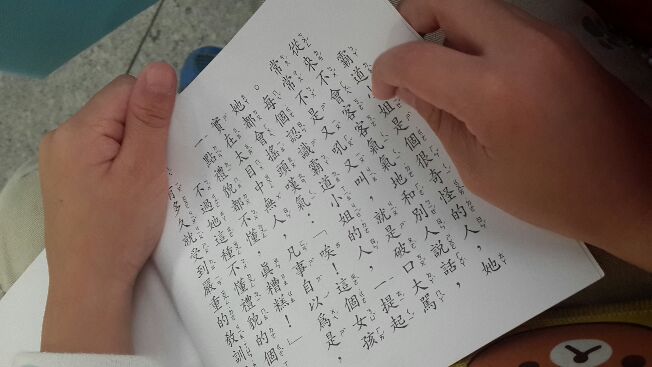 霸道姐是個很奇怪的人，她
從來不會客客氣氣地和別人說話，
常常不是又吼又叫，就是破口大罵，
。每個認識霸道小姐的人，一提起
她都會搖頭嘆氣：「唉！這個女孩
實在太目中無人，凡事自以為是，
一點禮貌都不懂，真糟糕！」
不過她這種不懂禮貌的個
有多久就受到嚴重的教訓